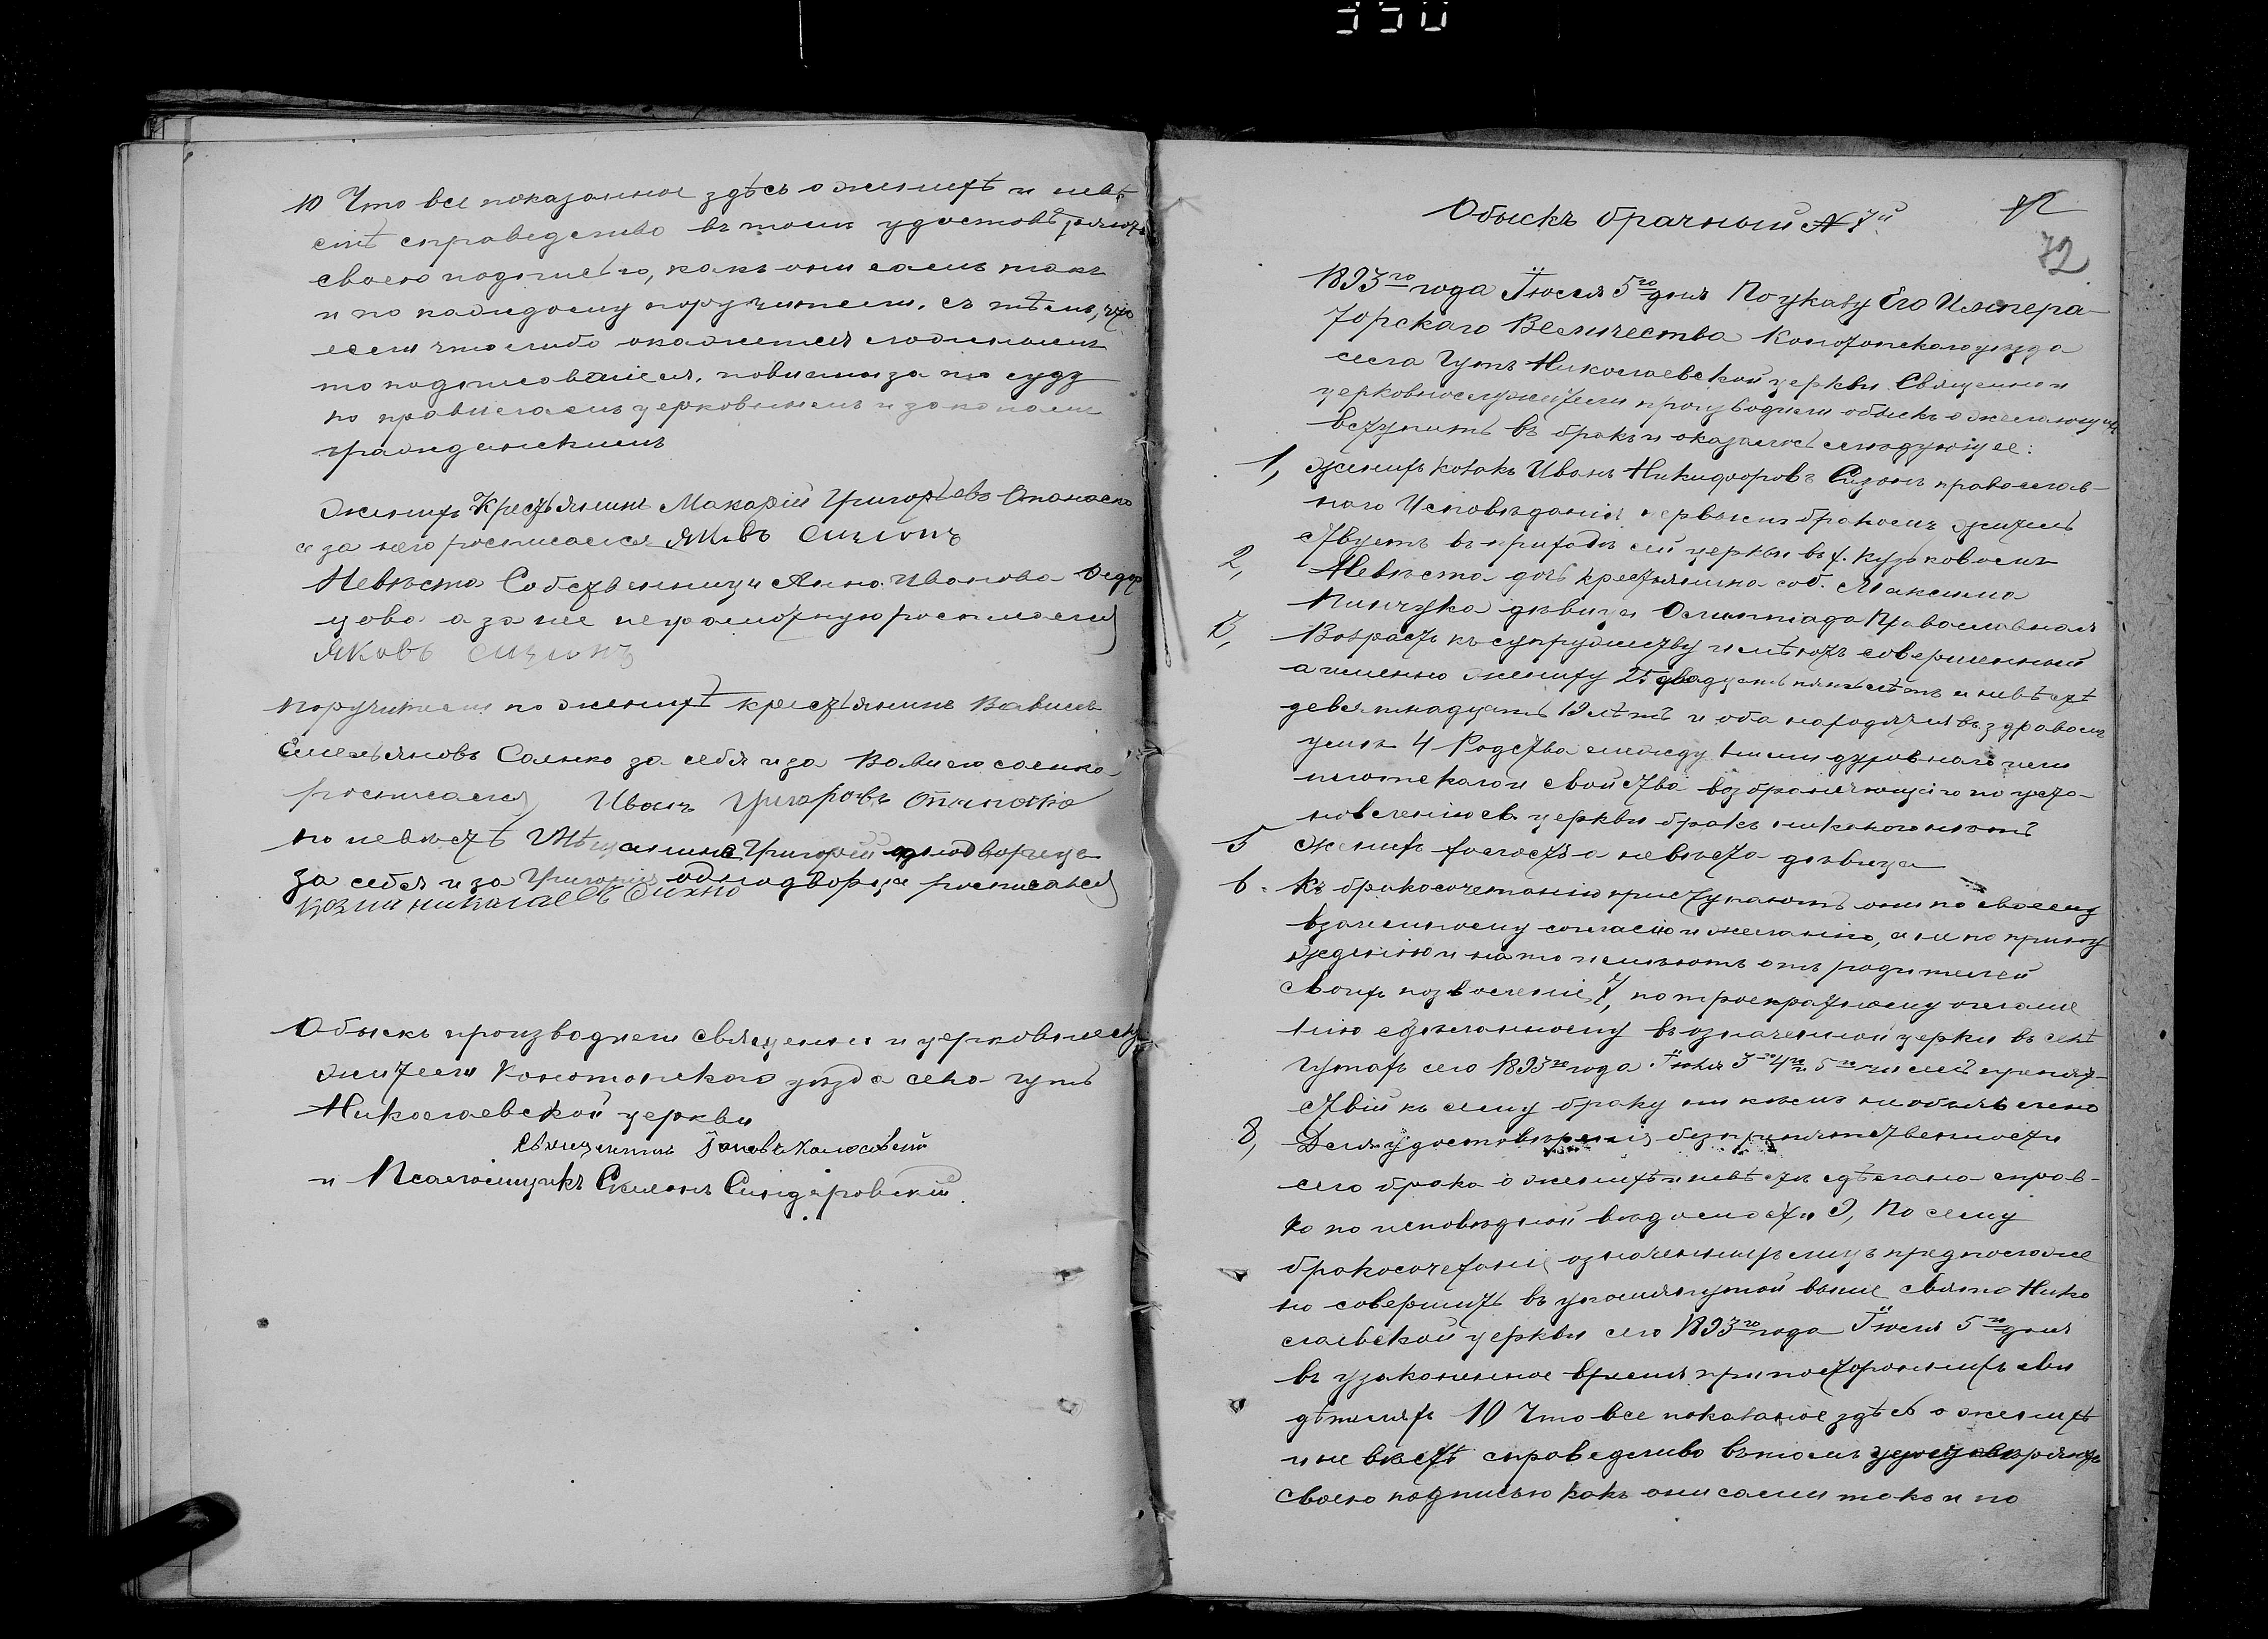 550
10 Что все показанное здѣсь о женихѣ и невѣ-
стѣ справедливо въ томъ удостовѣряютъ
своею подписью, какъ они сами такъ
и по каждому поручители, съ тѣмъ, что
если что либо окажется ложнымъ
то подписавшіеся, повинны за то суду
по правиламъ церковнымъ и законамъ
гражданскимъ
Женихъ Крестьянинъ Макарій Григорьевъ Опанасенко
а за него росписался Яковъ Сизонъ
Невѣста Собственница Анна Иванова
цова а за нее неграмотную росписался
Яковъ Сизонъ
Поручители по женихѣ крестьянинъ Вавилъ
Емельяновъ Саенко за себя и за Вавилу Саенка
росписался Иванъ Григоровъ
по невѣстѣ Мѣщанинъ Григорій однодворецъ
за себя и за Григорія однодворца росписался
козма николаевъ Сихно
Обыскъ производили священно и церковнослу-
жители Конотопскаго уѣзда села Гутъ
Николаевской церкви
Священникъ Іаковъ
и Псаломщикъ
72
72
Обыскъ брачный № 7й
1893го года Іюля 5го дня По указу Его Импера-
торскаго Величества Конотопскаго уѣзда
села Гутъ Николаевской церкви Священно и
церковнослужители производили обыскъ о желающихъ
вступить въ бракъ и оказалось слѣдующее:
1, Женихъ козакъ Иванъ Никифоровъ Сизонъ православ-
наго Исповѣданія первымъ бракомъ жител
ствуетъ въ приходѣ сей церкви въ х.
2, Невѣста дочь крестьянина соб. Максима
Пинчука дѣвица Олимпіада Православная
3, Возрастъ къ супружеству имѣютъ совершенный
а именно жениху 25 двадцать пять лѣтъ и невѣстѣ
девятнадцать 19 лѣтъ и оба находятся въ здравомъ
умѣ 4 Родства между ними духовнаго или
плотскаго и свойства возбраняющаго по уста-
новленію св. церкви бракъ никакого нѣтъ
5 Женихъ холостъ а невѣста дѣвица
6. Къ бракосочетанію приступаютъ они по своему
взаимному согласію и желанію, а не по прину
жденію и на то имѣютъ отъ родителей
своихъ позволеніе 7, по троекратному оглаше
нію сдѣланному въ означенной церкви въ селѣ
Гутахъ сего 1893го года Іюля 3го 4го и 5го чиселъ препят-
ствій къ сему браку никѣмъ не объявлено
8, Для удостовѣренія безпрепятственности
сего брака о женихѣ и невѣстѣ сдѣлана справ-
ка по исповѣдной вѣдомости 9, По сему
бракосочетаніе означенныхъ лицъ предположе
но совершить въ упомянутой выше Свято Нико
лаевской церкви сего 1893го года Іюля 5го дня
въ узаконенное время при постороннихъ сви
дѣтеляхъ 10 Что все показаное здѣсь о женихѣ
и невѣстѣ справедливо въ томъ удостовѣряютъ
своею подписью какъ они сами такъ и по